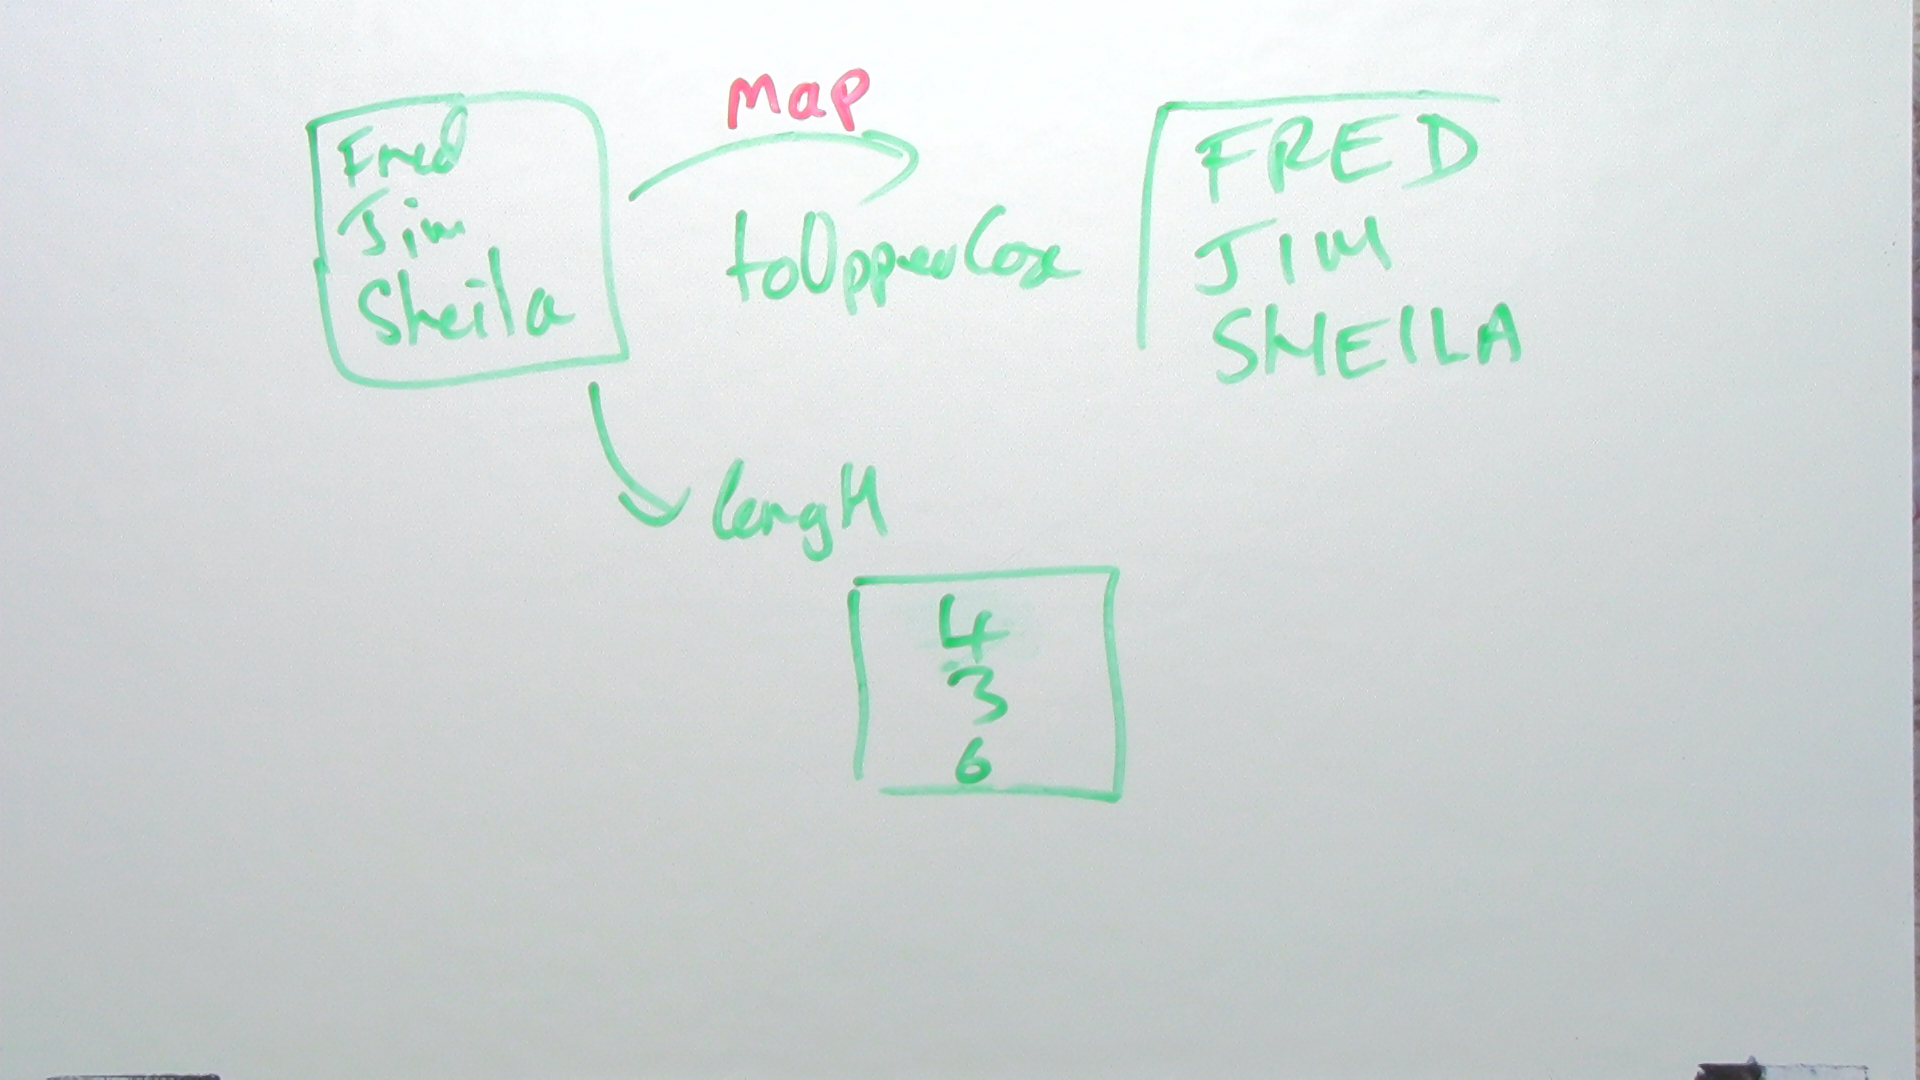 Map
Fred
Jim
Sheila
toUpperCase
FRED
JIM
SHEILA
length
4
3
6